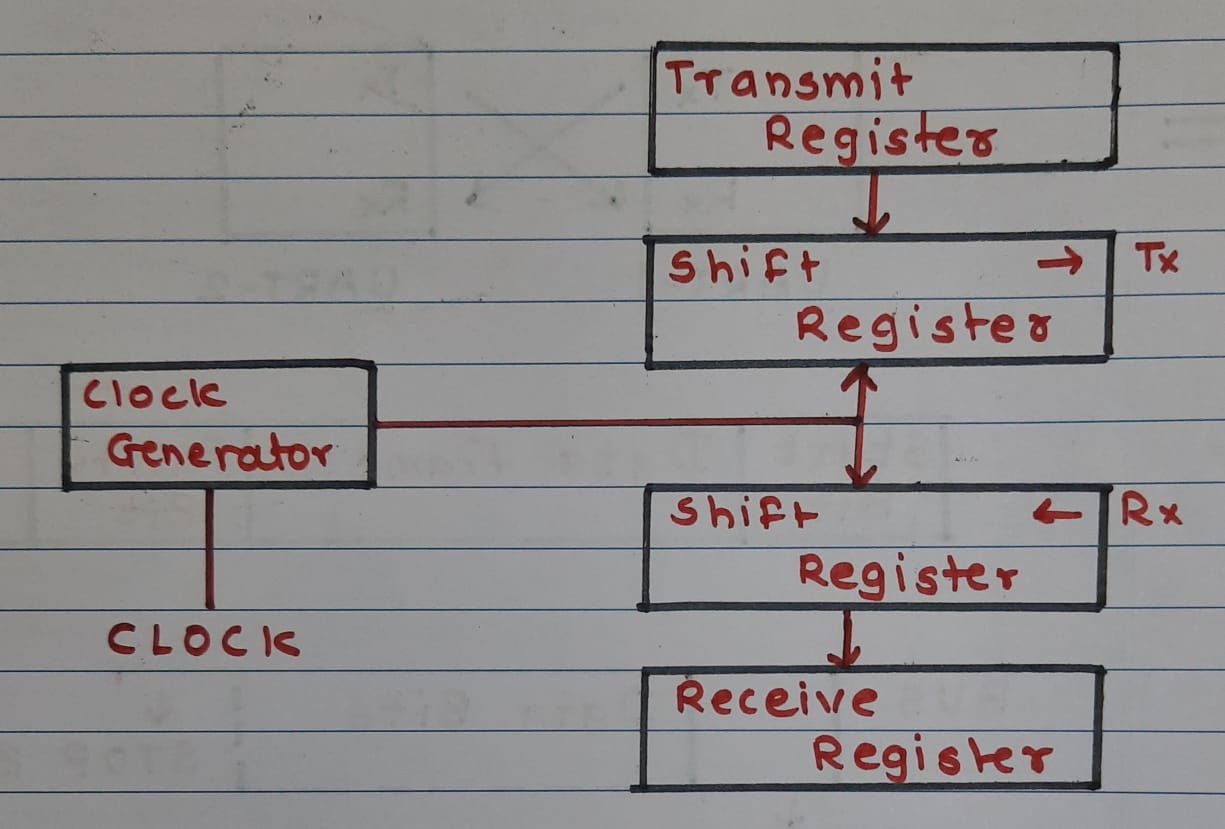 Transmit
Register
Shift → Tx
Register
Clock
Generator
Shift ← Rx
Register
CLOCK
Receive
Register